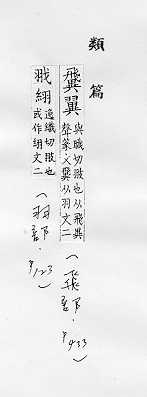 類篇
䬌翼 與職切翄也从飛異
聲篆文从羽文二 （飛部·P433）
逸織切翄也
或作文二 （羽部·P123）